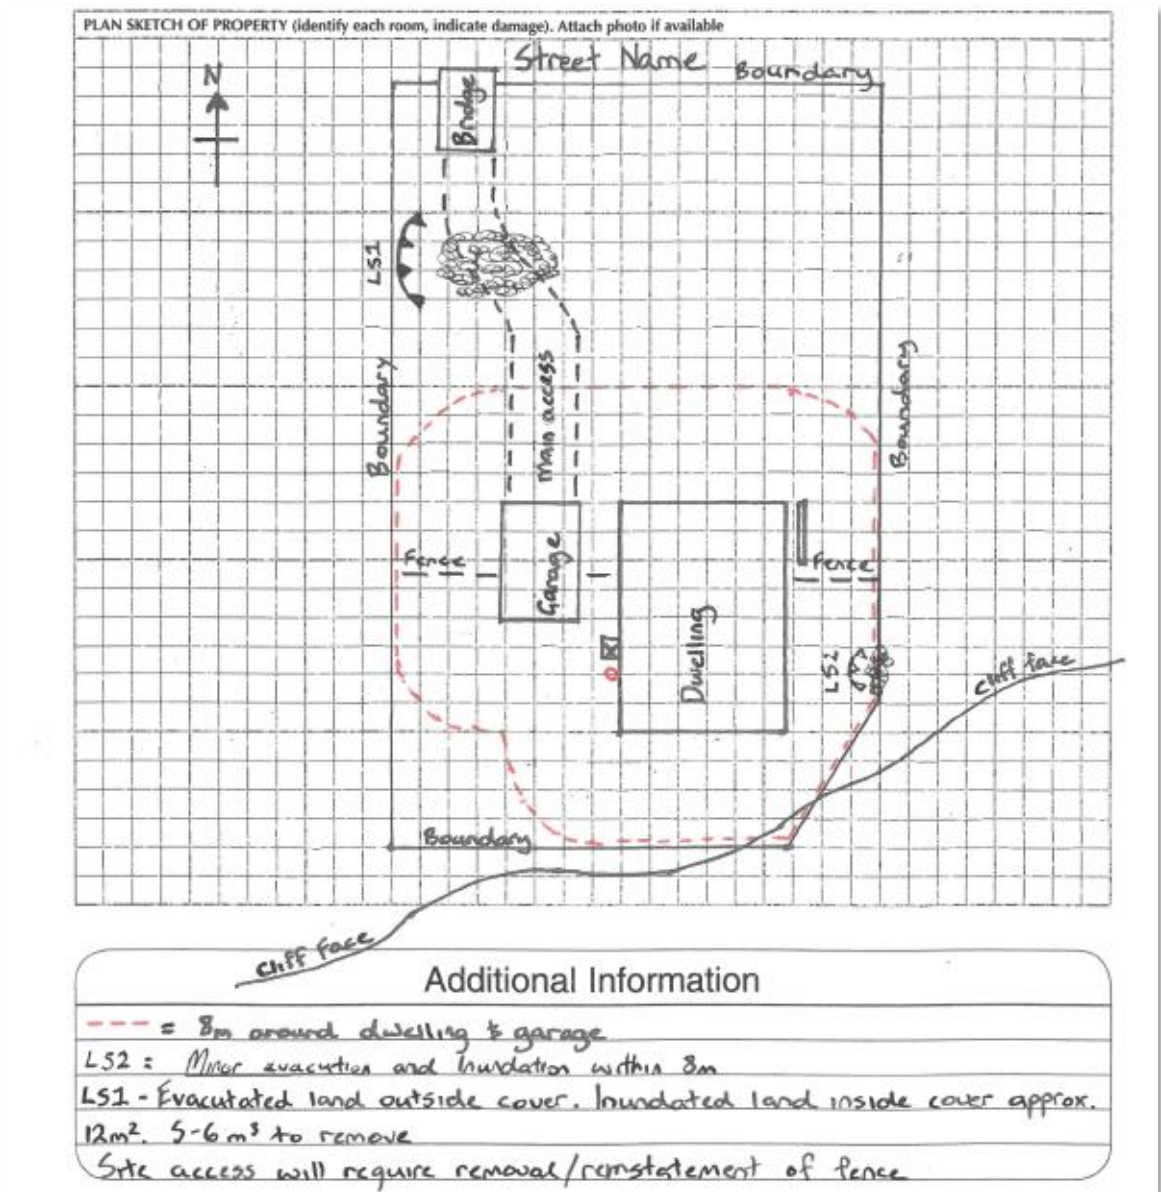 PLAN SKETCH OF PROPERTY (identify each room, indicate damage). Attach photo if available
Street Name
Boundary
N
Bridge
LS1
Boundary
Main access
Boundary
Fence
Garage
Fence
Dwelling
LS2
Cliff face
Boundary
Cliff Face
Additional Information
= 8m around dwelling & garage
LS2 = Minor evacution and Inundation within 8m
LS1 - Evacutated land outside cover. Inundated land inside cover approx.
12m². 5-6 m³ to remove
Site access will require removal/reinstatement of fence